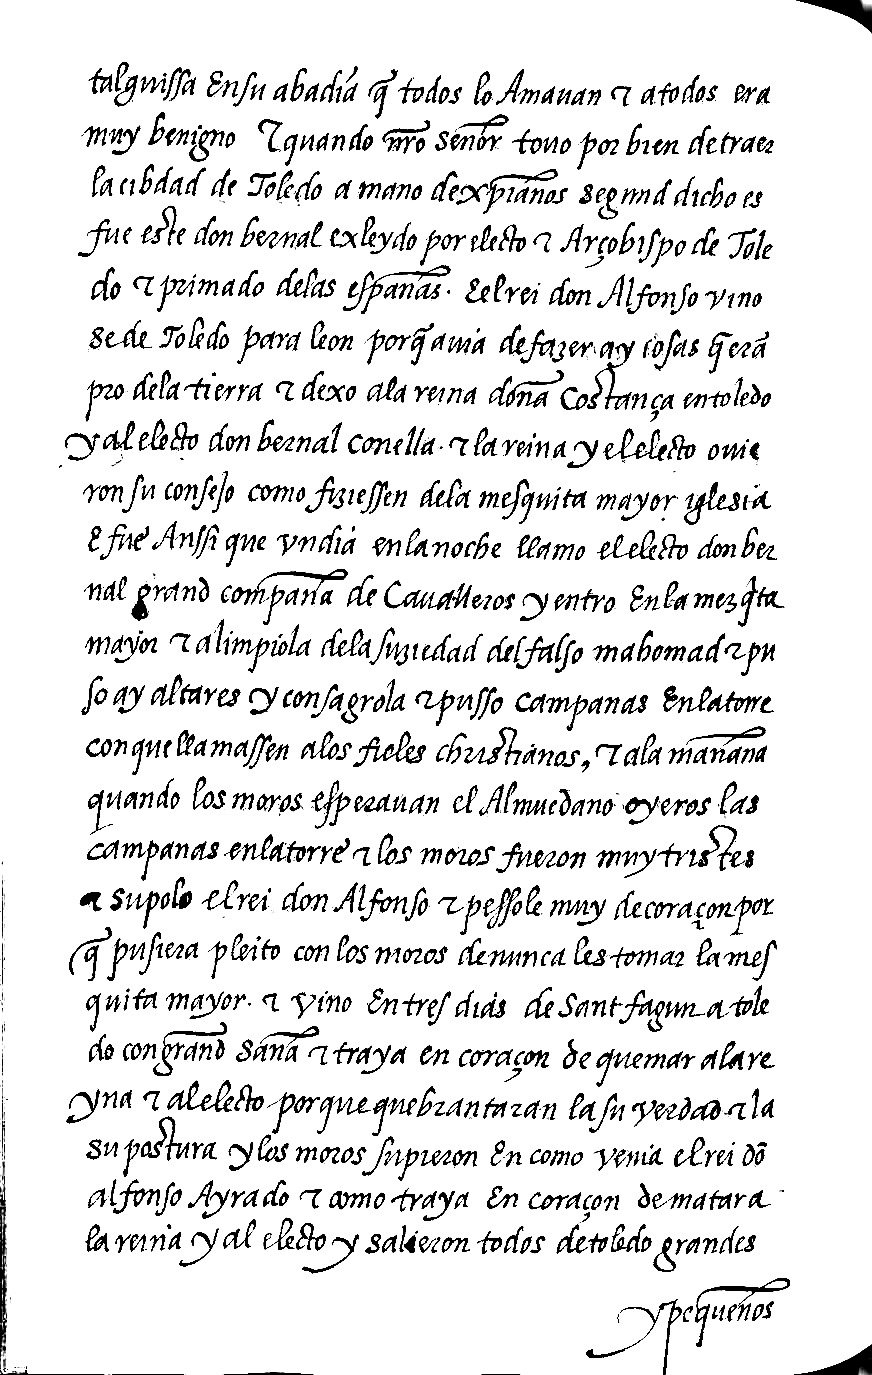 talguissa Ensu abadia q̃ todos lo Amauan τ atodos era
muy benigno τ quando nr̃o Señor touo por bien detraer
la cibdad de Toledo a mano dexp̃ianos segund dicho es
fue este don bernal exleydo por electo τ Arçobispo de Tole
do τ primado delas españas. Eelrei don Alfonso vino
se de Toledo para leon porq̃ auia defazer ay cosas q̃ erã
pro dela tierra τ dexo ala reina doña Costança entoledo
y al electo don bernal conella. τ la reina y el electo ouie
ron su consejo como fiziessen dela mesquita mayor yglesia
E fue Anssi que vndia enlanoche llamo el electo don ber
nal grand compaña de Caualleros y entro Enla mezq̃ta
mayor τ alimpiola dela suziedad del falso mahomad τ pu
so ay altares y consagrola τ pusso campanas Enlatorre
conquellamassen alos fieles christianos, τ ala mañana
quando los moros esperauan el Almuedano oyeros las
campanas enlatorre τ los moros fueron muy tristes
τ supolo elrei don Alfonso τ pessole muy decoraçon por
q̃ pusiera pleito con los moros denunca les tomar la mes
quita mayor. τ vino Entres dias de Sant fagun a tole
do congrand saña τ traya en coraçon de quemar alare
yna τ al electo porque quebrantaran la su verdad τ la
su postura y los moros supieron En como venia elrei dõ
alfonso Ayrado τ como traya En coraçon dematara
la reina y al electo y salieron todos detoledo grandes
ypequeños